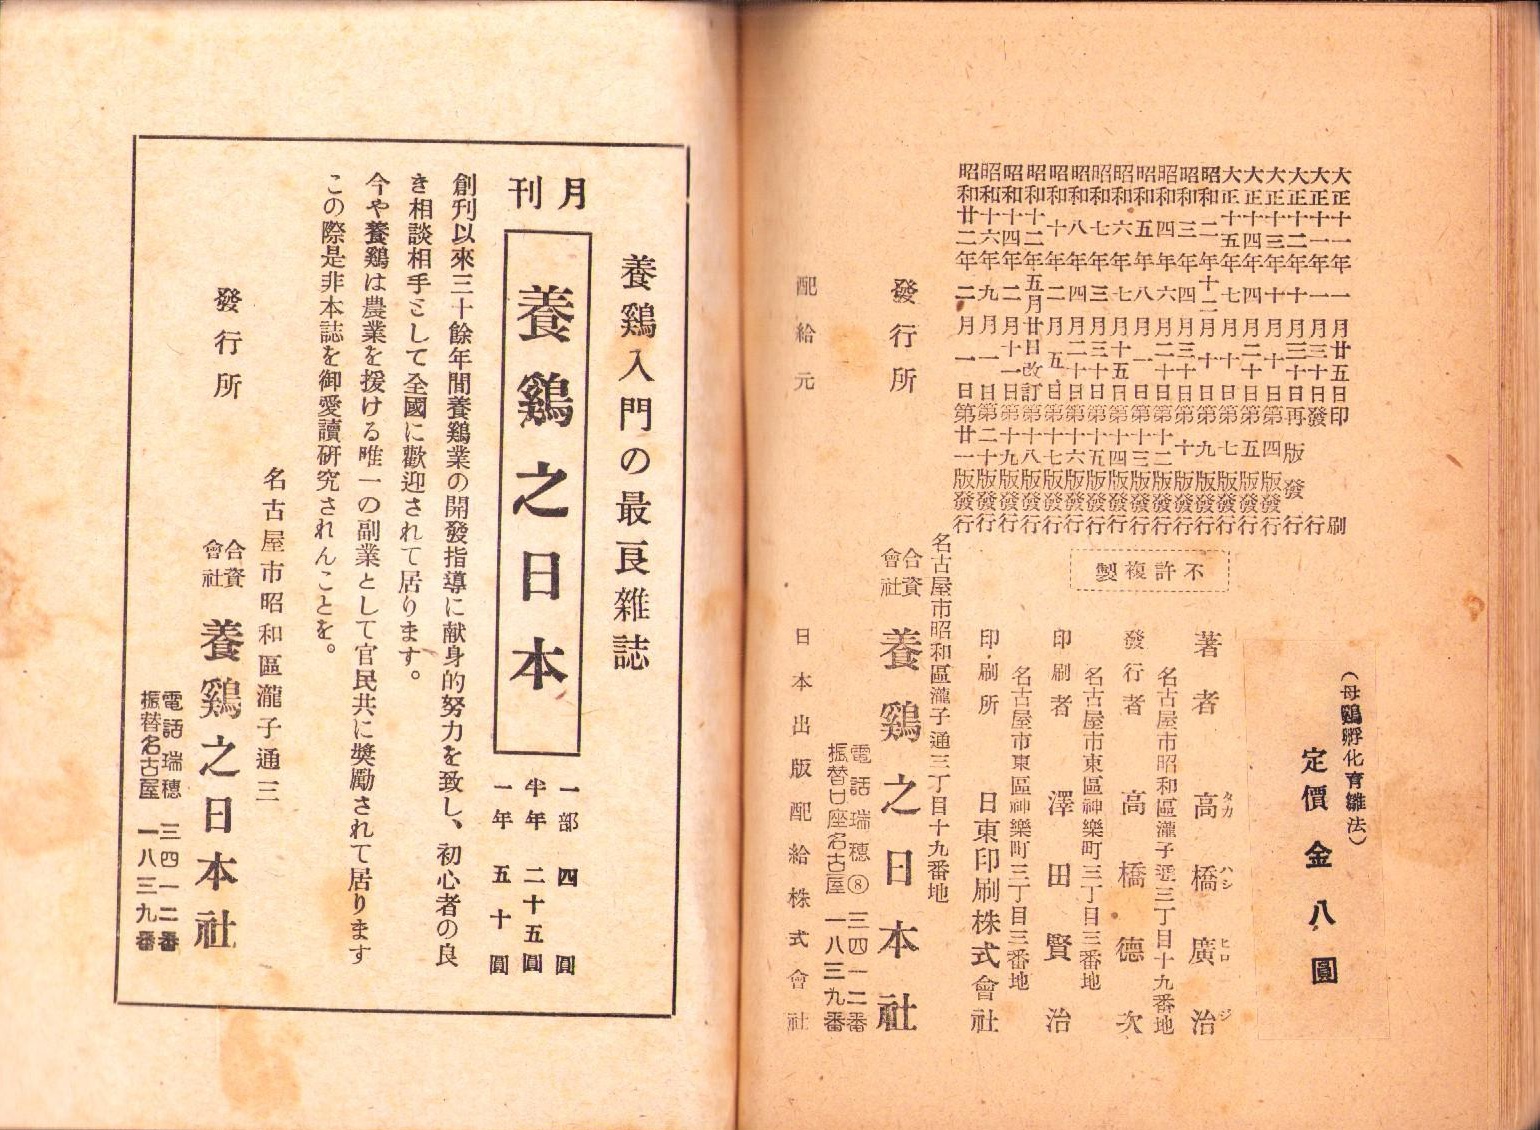 (母鷄孵化育雛法)
定價金八圓
大正十一年一月廿五日印刷
大正十一年一月三十日發行
大正十二年十月三十日再版發行
大正十三年十月十日第四版發行
大正十四年四月二十日第五版發行
大正十五年七月十日第七版發行
昭和二年十二月十日第九版發行
昭和三年四月三十日第十版發行
昭和四年六月二十日第十二版發行
昭和五年八月一日第十三版發行
昭和六年七月十五日第十四版發行
昭和七年三月三十日第十五版發行
昭和八年四月二十日第十六版發行
昭和十年二月五日第十七版發行
昭和十二年五月廿日改訂第十八版發行
昭和十四年二月十一日第十九版發行
昭和十六年九月一日第二十版發行
昭和廿二年二月一日第廿一版發行
不許複製
著者 高橋廣治
タカハシヒロジ
名古屋市昭和區瀧子通三丁目十九番地
發行者 高橋德次
名古屋市東區神樂町三丁目三番地
印刷者 澤田賢治
名古屋市東區神樂町三丁目三番地
印刷所 日東印刷株式會社
名古屋市昭和區瀧子通三丁目十九番地
發行所 合資會社 養鷄之日本社
電話瑞穗⑧三四一二番
振替口座名古屋一八三九番
配給元 日本出版配給株式會社
養鷄入門の最良雜誌
月刊 養鷄之日本
一部 四圓
半年 二十五圓
一年 五十圓
創刊以來三十餘年間養鷄業の開發指導に献身的努力を致し、初心者の良
き相談相手として全國に歡迎されて居ります。
今や養鷄は農業を援ける唯一の副業として官民共に奬勵されて居ります
この際是非本誌を御愛讀研究されんことを。
名古屋市昭和區瀧子通三
發行所 合資會社 養鷄之日本社
電話瑞穗 三四一二番
振替名古屋 一八三九番